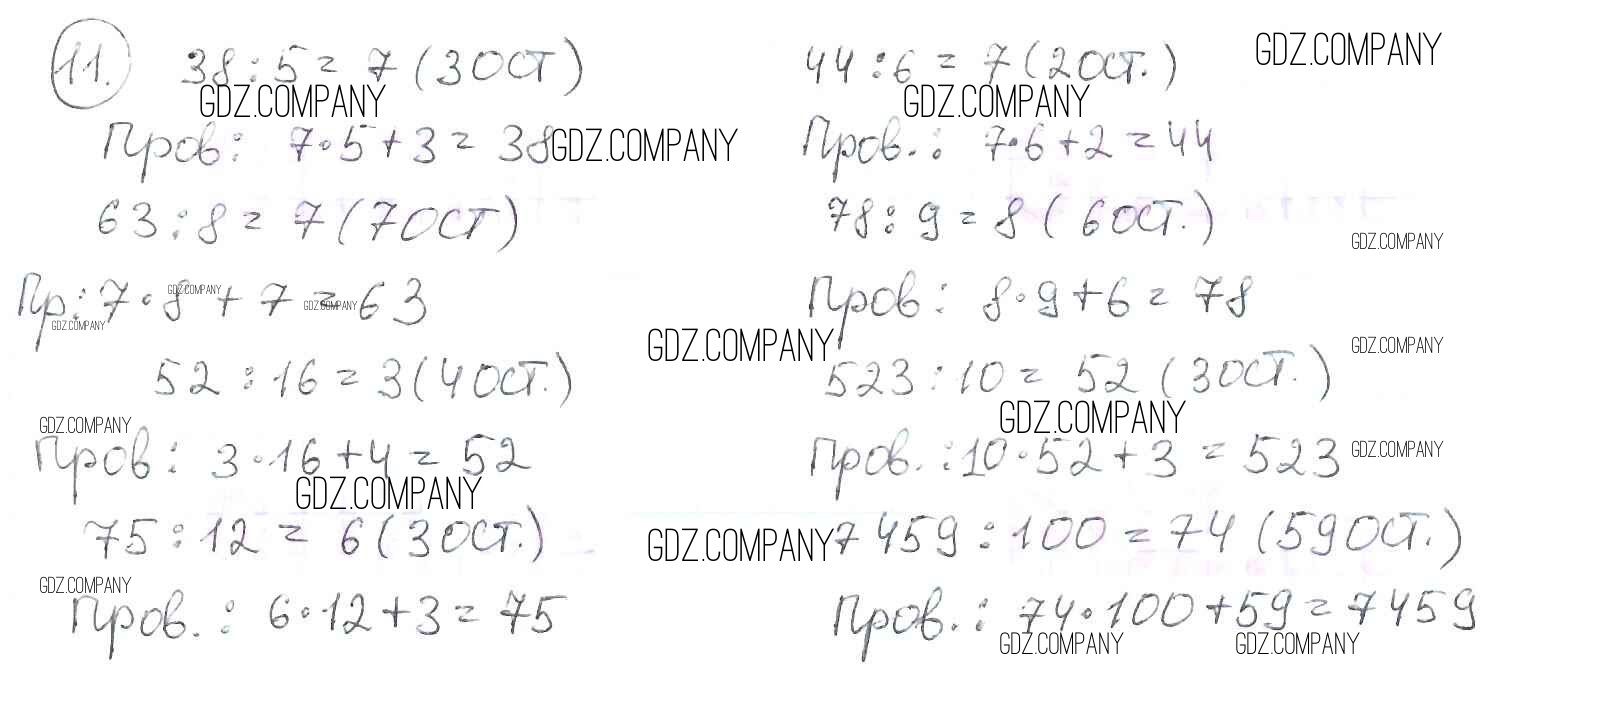 11. 38:5=7(3ОСТ) 44:6=7(2ОСТ.) GDZ.COMPANY
GDZ.COMPANY GDZ.COMPANY
Пров: 7·5+3=38 GDZ.COMPANY Пров.: 7·6+2=44
63:8=7(7ОСТ) 78:9=8(6ОСТ.)
GDZ.COMPANY
Пр: 7·8+7=63 Пров: 8·9+6=78
GDZ.COMPANY GDZ.COMPANY
GDZ.COMPANY
GDZ.COMPANY GDZ.COMPANY
52:16=3(4ОСТ.) 523:10=52(3ОСТ.)
GDZ.COMPANY GDZ.COMPANY
Пров: 3·16+4=52 Пров.: 10·52+3=523 GDZ.COMPANY
GDZ.COMPANY
75:12=6(3ОСТ.) GDZ.COMPANY 7459:100=74(59ОСТ.)
GDZ.COMPANY
Пров.: 6·12+3=75 Пров.: 74·100+59=7459
GDZ.COMPANY GDZ.COMPANY